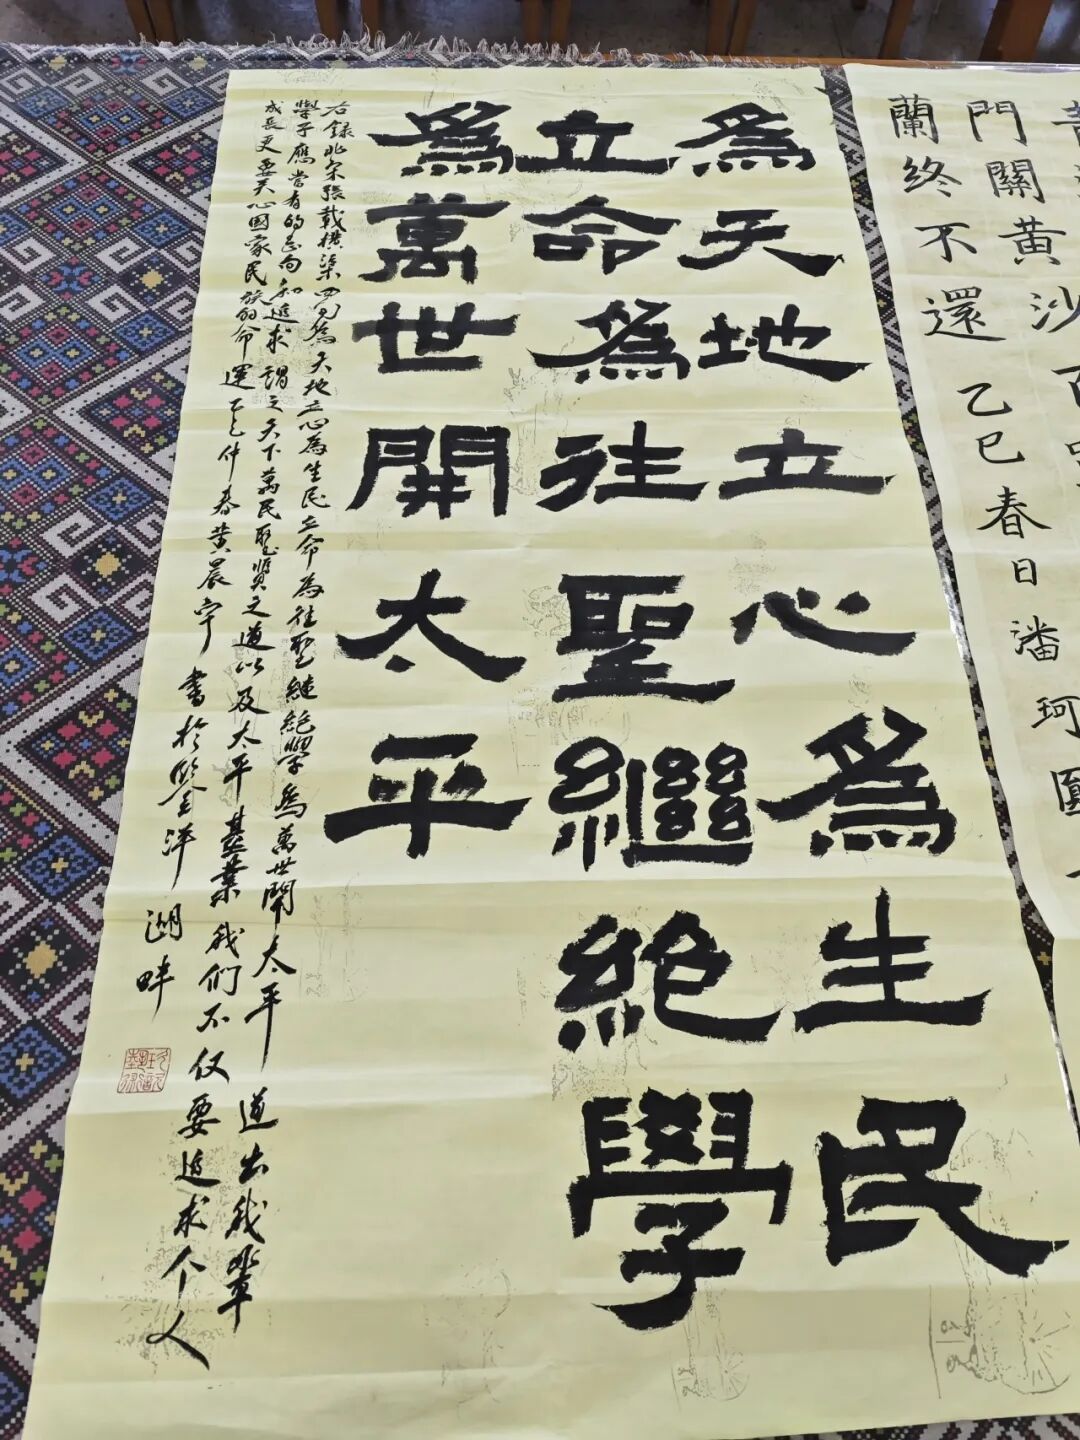 門關黃沙百
蘭終不還 乙巳春日潘珂圓
為天地立心為生民
立命為往聖繼絕學
為萬世開太平
右錄北宋張載橫渠四句為天地立心為生民立命為往聖繼絕學為萬世開太平 道出我輩
學子應當有的志向和追求 謂之天下萬民聖賢之道以及太平基業我们不仅要追求个人
成長更要关心國家民族的命運乙巳仲春黃晨宇 書於鑒洋湖畔